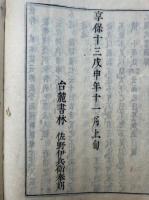 享保十三戊申年十一月上旬
台麓書林 佐野伊兵衛